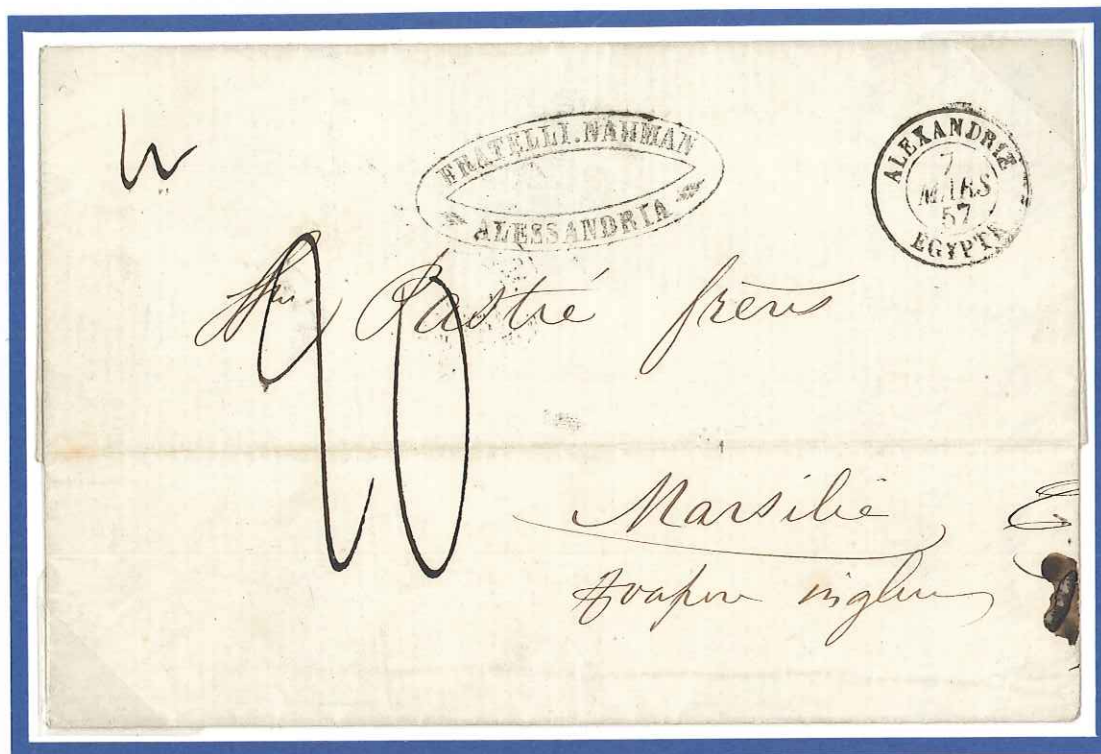 FRATELLI.NAHMAN
ALESSANDRIA
ALEXANDRIE
7
MARS
57
EGYPTE
Pastré frères
20
Marsilie
vapore inglese